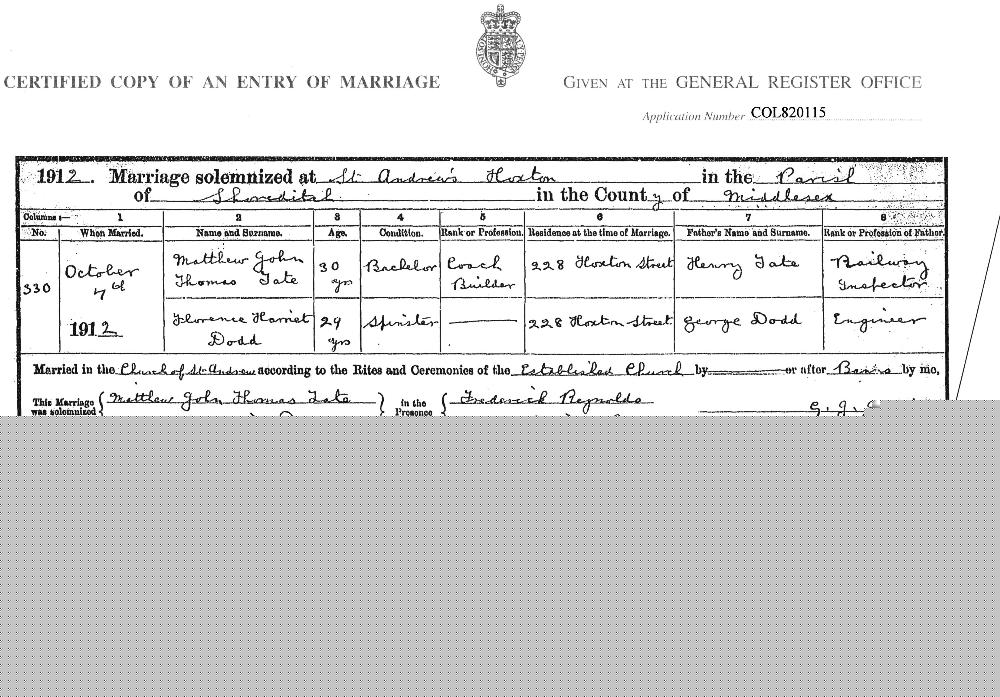 CERTIFIED COPY OF AN ENTRY OF MARRIAGE
GIVEN AT THE GENERAL REGISTER OFFICE
Application Number COL820115
1912. Marriage solemnized at St Andrew's Hoxton in the Parish
of Shoreditch in the County of Middlesex
Columns :— 1 2 3 4 5 6 7 8
No. When Married. Name and Surname. Age. Condition. Rank or Profession. Residence at the time of Marriage. Father's Name and Surname. Rank or Profession of Father.
330 October 7th 1912
Matthew John Thomas Tate 30 yrs Bachelor Coach Builder 228 Hoxton Street Henry Tate Railway Inspector
Florence Harriet Dodd 29 yrs Spinster 228 Hoxton Street George Dodd Engineer
Married in the Church of St Andrew according to the Rites and Ceremonies of the Established Church by or after Banns by me,
This Marriage was solemnized Matthew John Thomas Tate in the Presence Frederick Reynolds G. J.